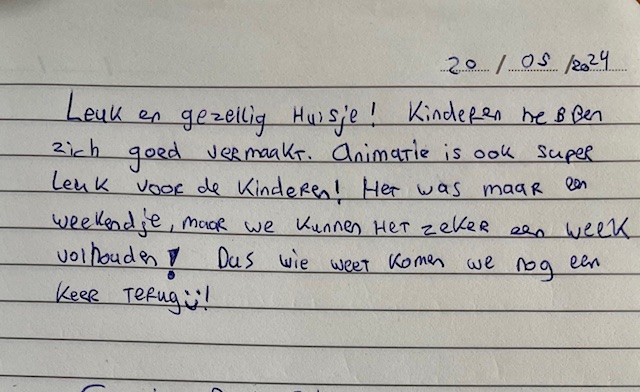 20 / 05 / 2024
Leuk en gezellig Huisje! Kinderen hebben
zich goed vermaakt. Animatie is ook super
leuk voor de kinderen! Het was maar een
weekendje, maar we kunnen het zeker een week
volhouden! Dus wie weet komen we nog een
keer terug!